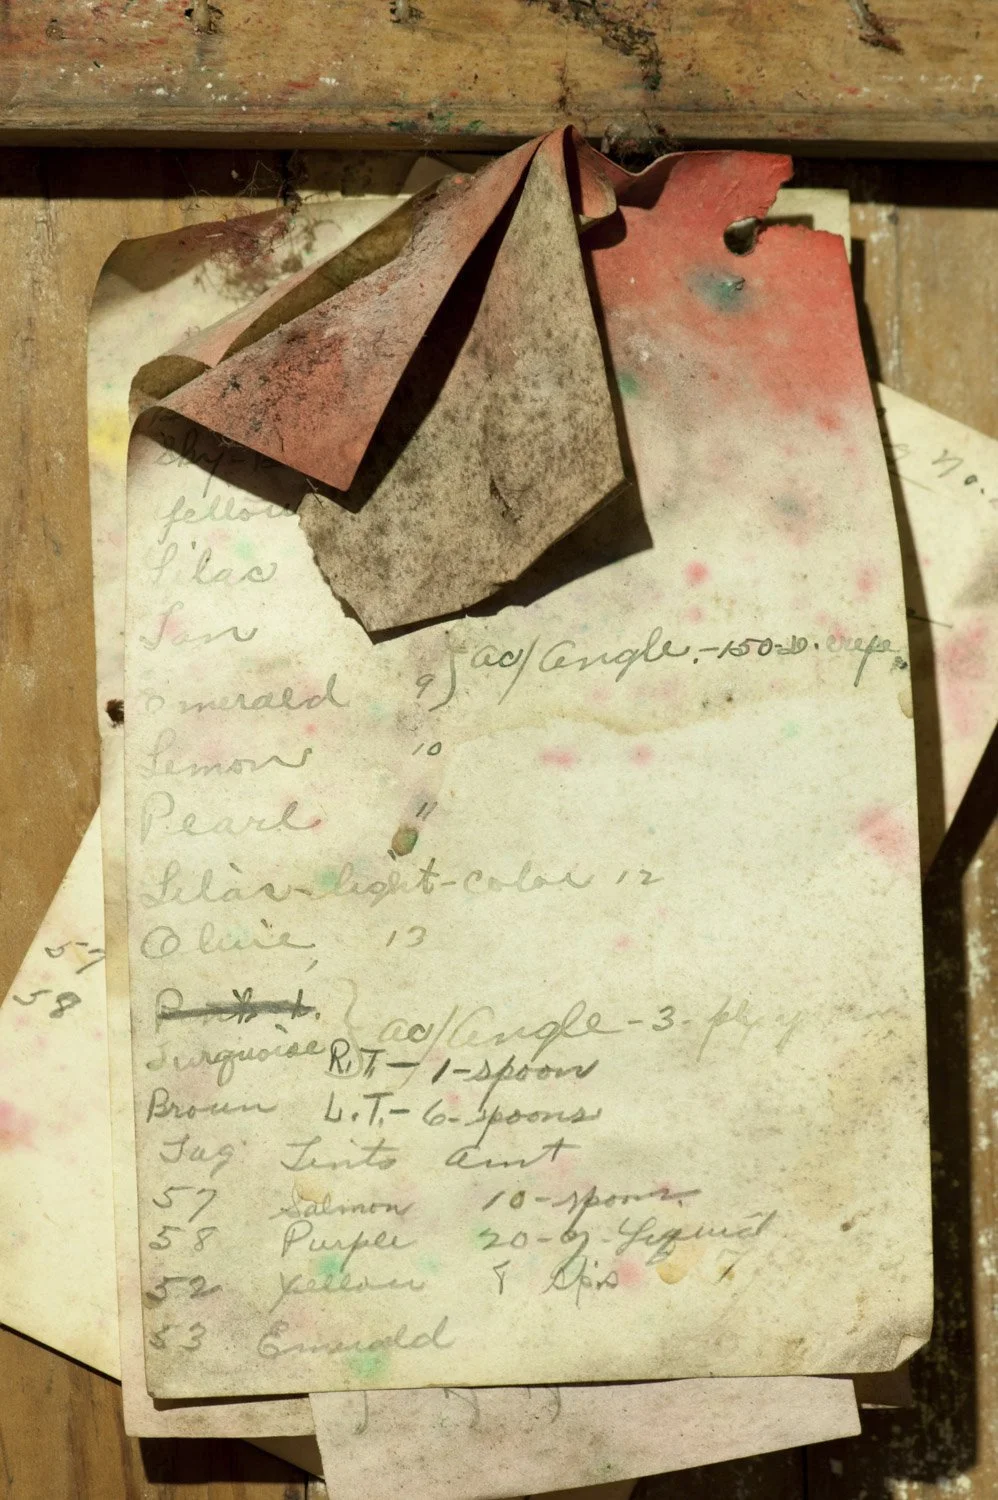 Sky-
Yellow
Lilac
Tan
Emerald 9 } ac/Angle.-150-D. crepe
Lemon 10
Pearl 11
Lilac-light-color 12
Olive, 13
Turquoise } ac/Angle-3-ply
R.T.- 1-spoon
Brown L.T.- 6-spoons
Tag Tints amt
57 Salmon 10-spoons.
58 Purple 20-oz-Liquid
52 Yellow 8
53 Emerald
57
58